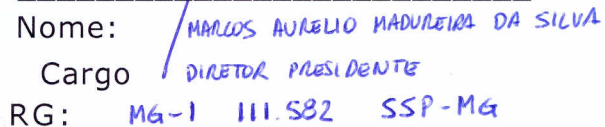 Nome: MARCOS AURELIO MADUREIRA DA SILVA
Cargo DIRETOR PRESIDENTE
RG: MG-1 111.582 SSP-MG